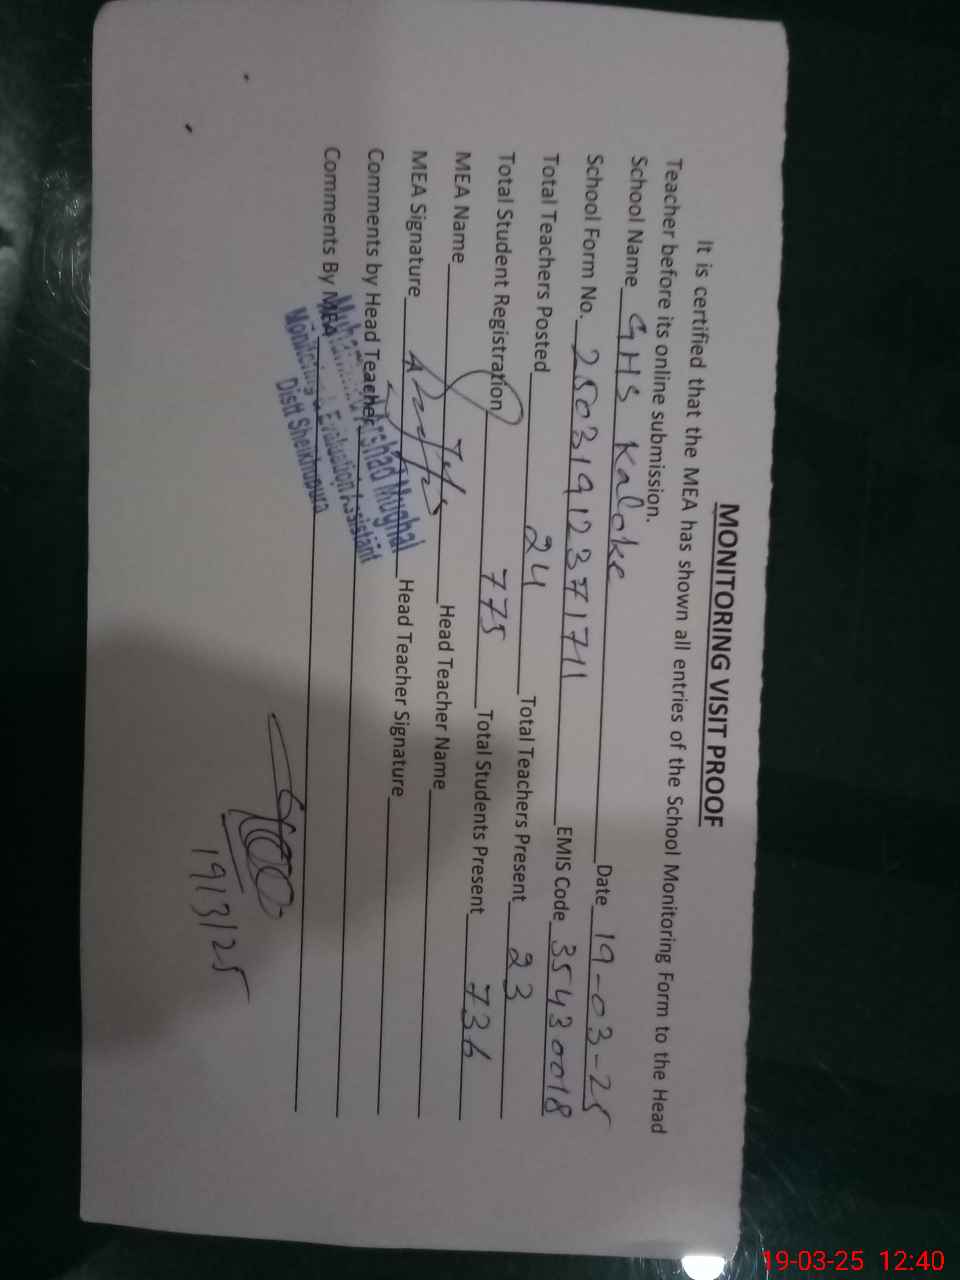 MONITORING VISIT PROOF
It is certified that the MEA has shown all entries of the School Monitoring Form to the Head
Teacher before its online submission.
School Name GHS Kaloke Date 19-03-25
School Form No. 250319123717 11 EMIS Code 35430018
Total Teachers Posted 24 Total Teachers Present 23
Total Student Registration 775 Total Students Present 736
MEA Name Head Teacher Name
MEA Signature Head Teacher Signature
Comments by Head Teacher
Comments By MEA
Arshad Mughal
Monitoring & Evaluation Assistant
Distt Sheikhupura
19/3/25
19-03-25 12:40